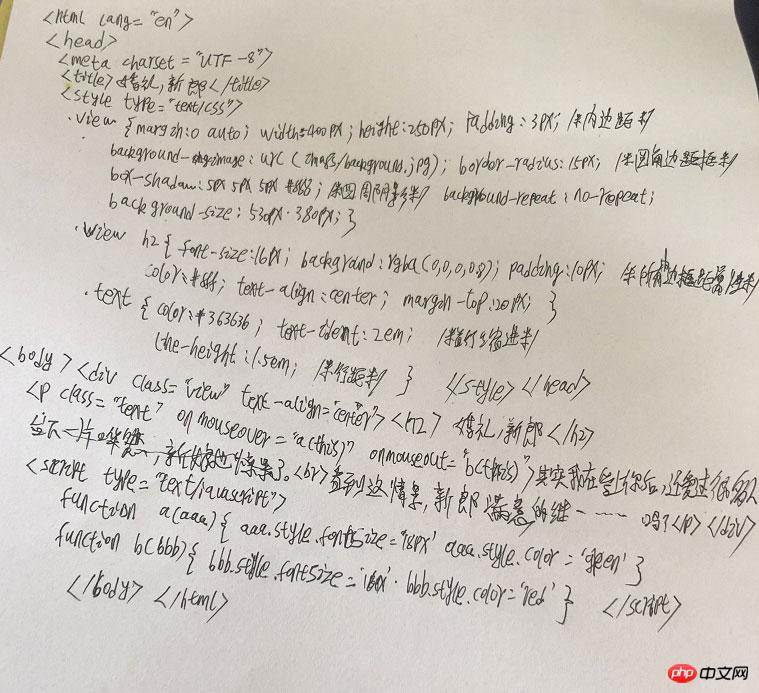 <html lang="en">
<head>
<meta charset="UTF-8">
<title>婚礼,新郎</title>
<style type="text/css">
.view {margin:0 auto; width:400px; height:250px; Padding:3px; /*内边距*/
background-image:url(images/background.jpg); border-radius:15px; /*圆角边框*/
box-shadow:5px 5px 5px #888; /*四周阴影*/ background-repeat:no-repeat;
background-size:530px 380px;}
.view h2{font-size:16px; background:rgba(0,0,0,0.8); padding:10px;
color:#fff; text-align:center; margin-top:20px; }
.text {color:#363636; text-ident:2em; /*首行缩进*/
line-height:1.5em; /*行距*/ } </style></head>
<body><div class="view" text-align="center"><h2>婚礼,新郎</h2>
<p class="text" onmouseover="a(this)" onmouseout="b(this)">其实我在
台下一片哗然,新 了。<br>看到这情景,新郎满意的继 …… 吗?<p></div>
<script type="text/javascript">
function a(aaa){ aaa.style.fontSize='18px' aaa.style.color='green' }
function b(bbb){ bbb.style.fontSize= bbb.style.color='red' } </script>
</body></html>
php 中文网